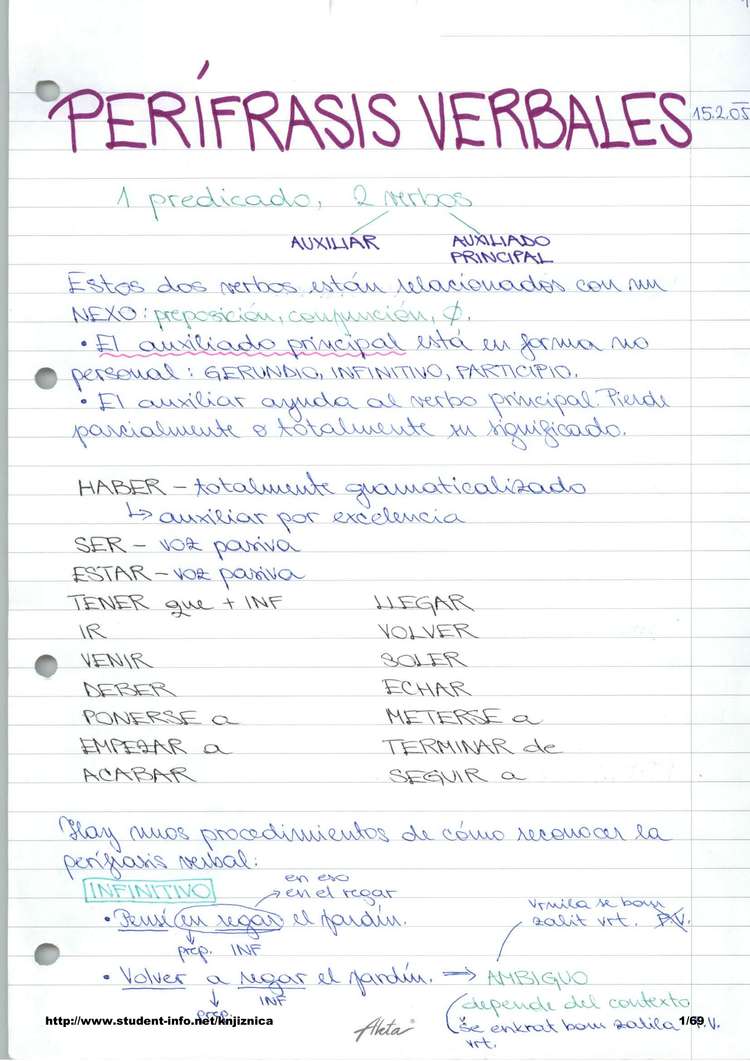 PERÍFRASIS VERBALES
15.2.05
1 predicado, 2 verbos
AUXILIAR AUXILIADO
PRINCIPAL
Estos dos verbos están relacionados con un
NEXO: preposición, conjunción, Ø.
• El auxiliado principal está en forma no
personal: GERUNDIO, INFINITIVO, PARTICIPIO.
• El auxiliar ayuda al verbo principal. Pierde
parcialmente o totalmente su significado.
HABER – totalmente gramaticalizado
↳ auxiliar por excelencia
SER – voz pasiva
ESTAR – voz pasiva
TENER que + INF LLEGAR
IR VOLVER
VENIR SOLER
DEBER ECHAR
PONERSE a METERSE a
EMPEZAR a TERMINAR de
ACABAR SEGUIR a
Hay unos procedimientos de cómo reconocer la
perífrasis verbal:
INFINITIVO
en eso
→ en el regar
• Pensé en regar el jardín.
prep. INF
Vrnila se bom
zalit vrt. P.V.
• Volver a regar el jardín. ⇒ AMBIGUO
prep. INF
(depende del contexto
še enkrat bom zalila P.V.
vrt.
http://www.student-info.net/knjiznica
Akta
1/69